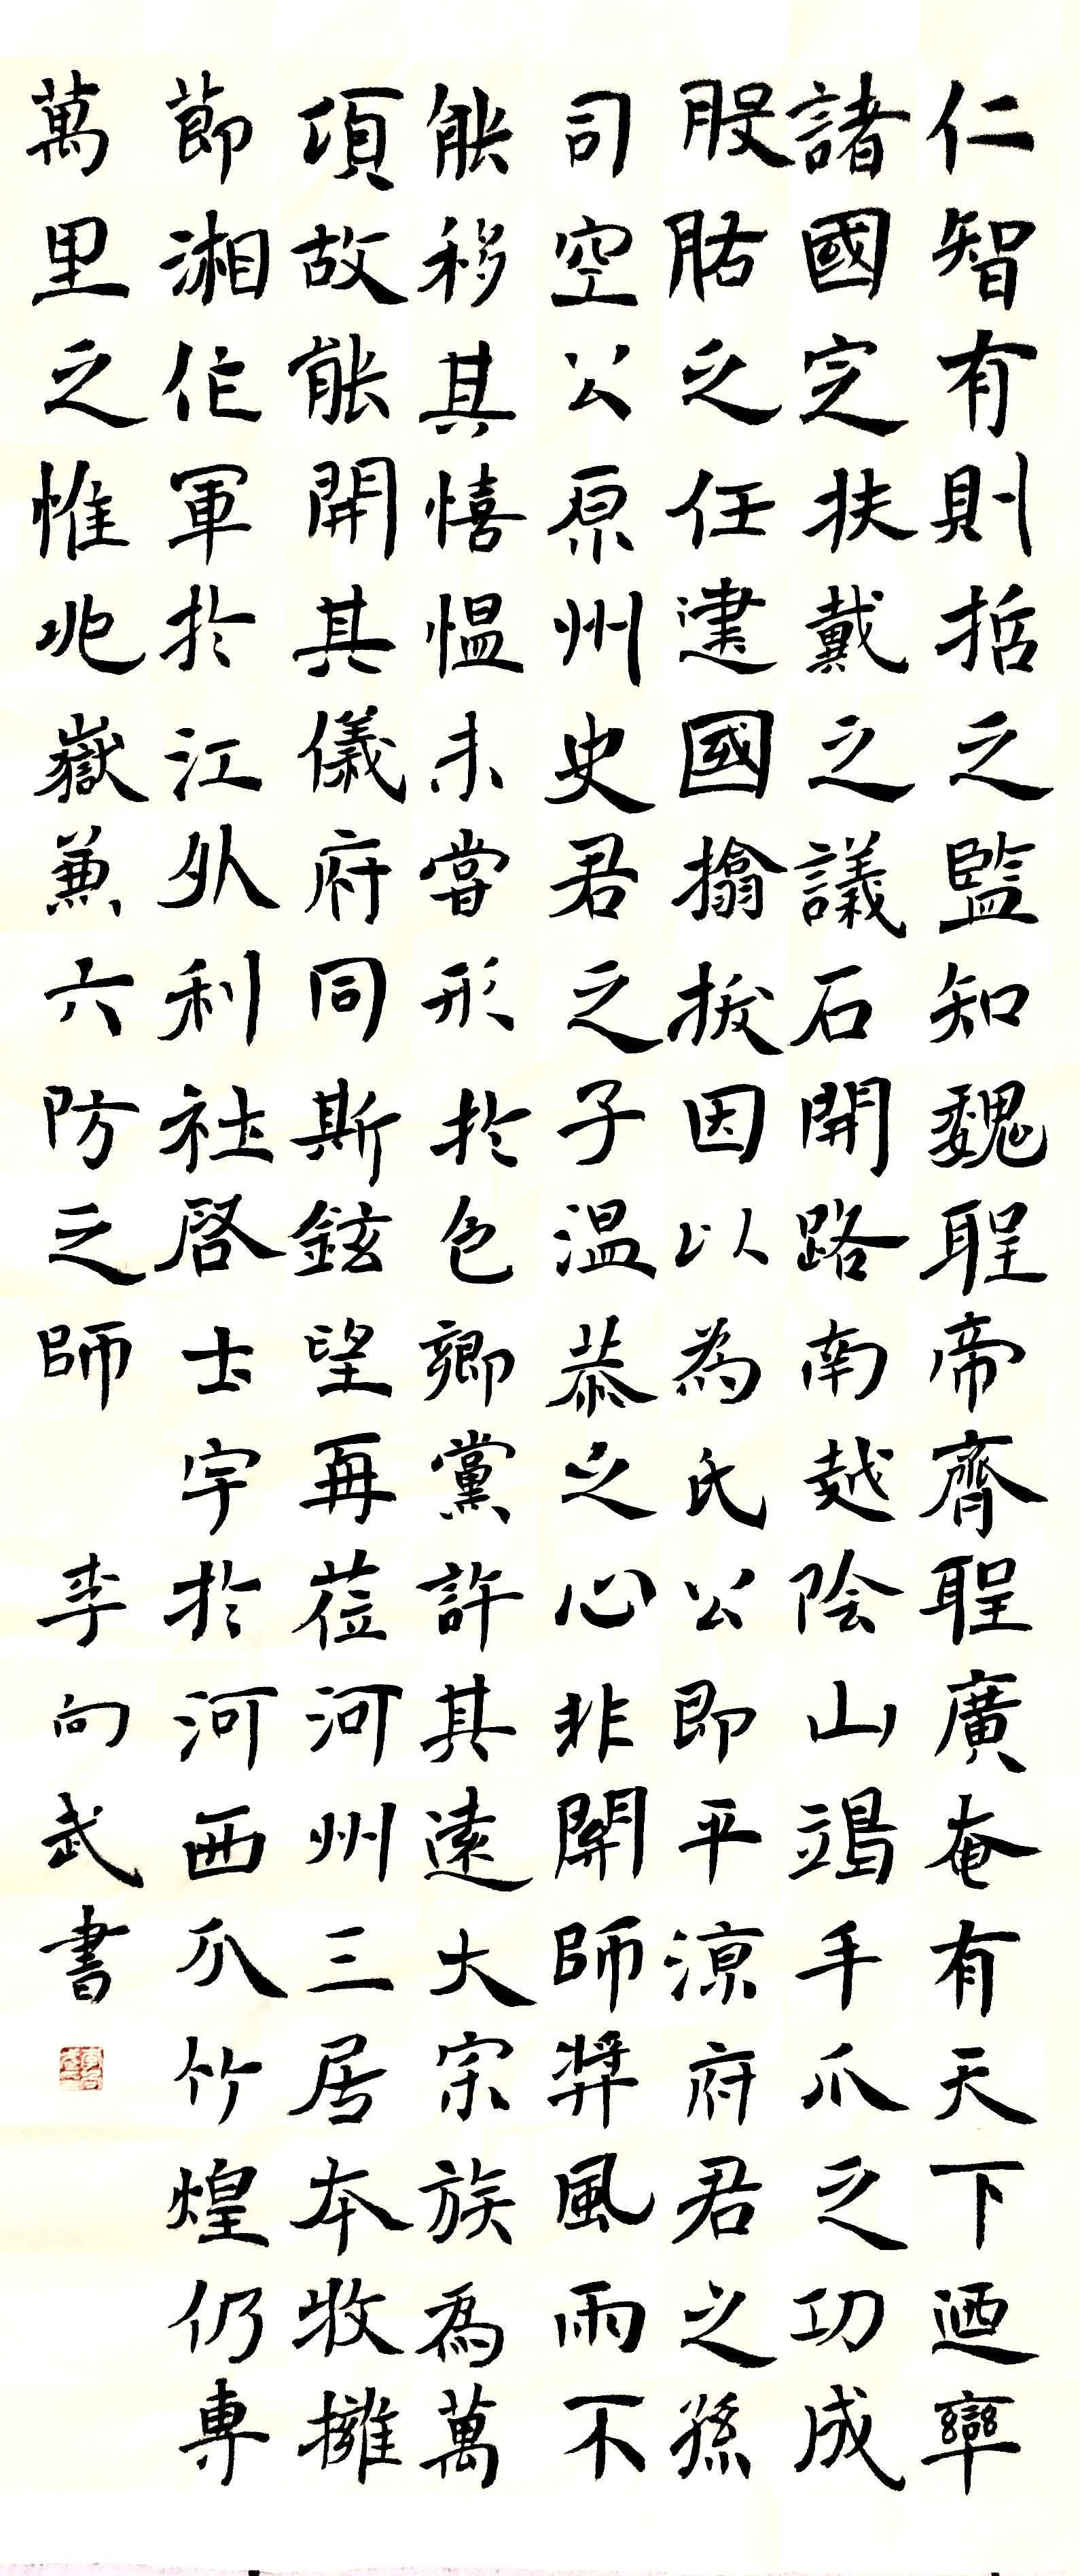 仁智有則哲之監知魏聖帝齊聖廣奄有天下迺率
諸國定扶戴之議石開路南越陰山竭手爪之功成
股肱之任建國搨拔因以為氏公即平涼府君之孫
司空公原州史君之子温恭之心非關師奬風雨不
能移其憘愠未嘗形於色鄉黨許其遠大宗族為萬
頃故能開其儀府同斯鉉望再莅河州三居本牧擁
節湘作軍於江外利社啓土宇於河西爪竹煌仍專
萬里之惟地嶽兼六防之師
李向武書